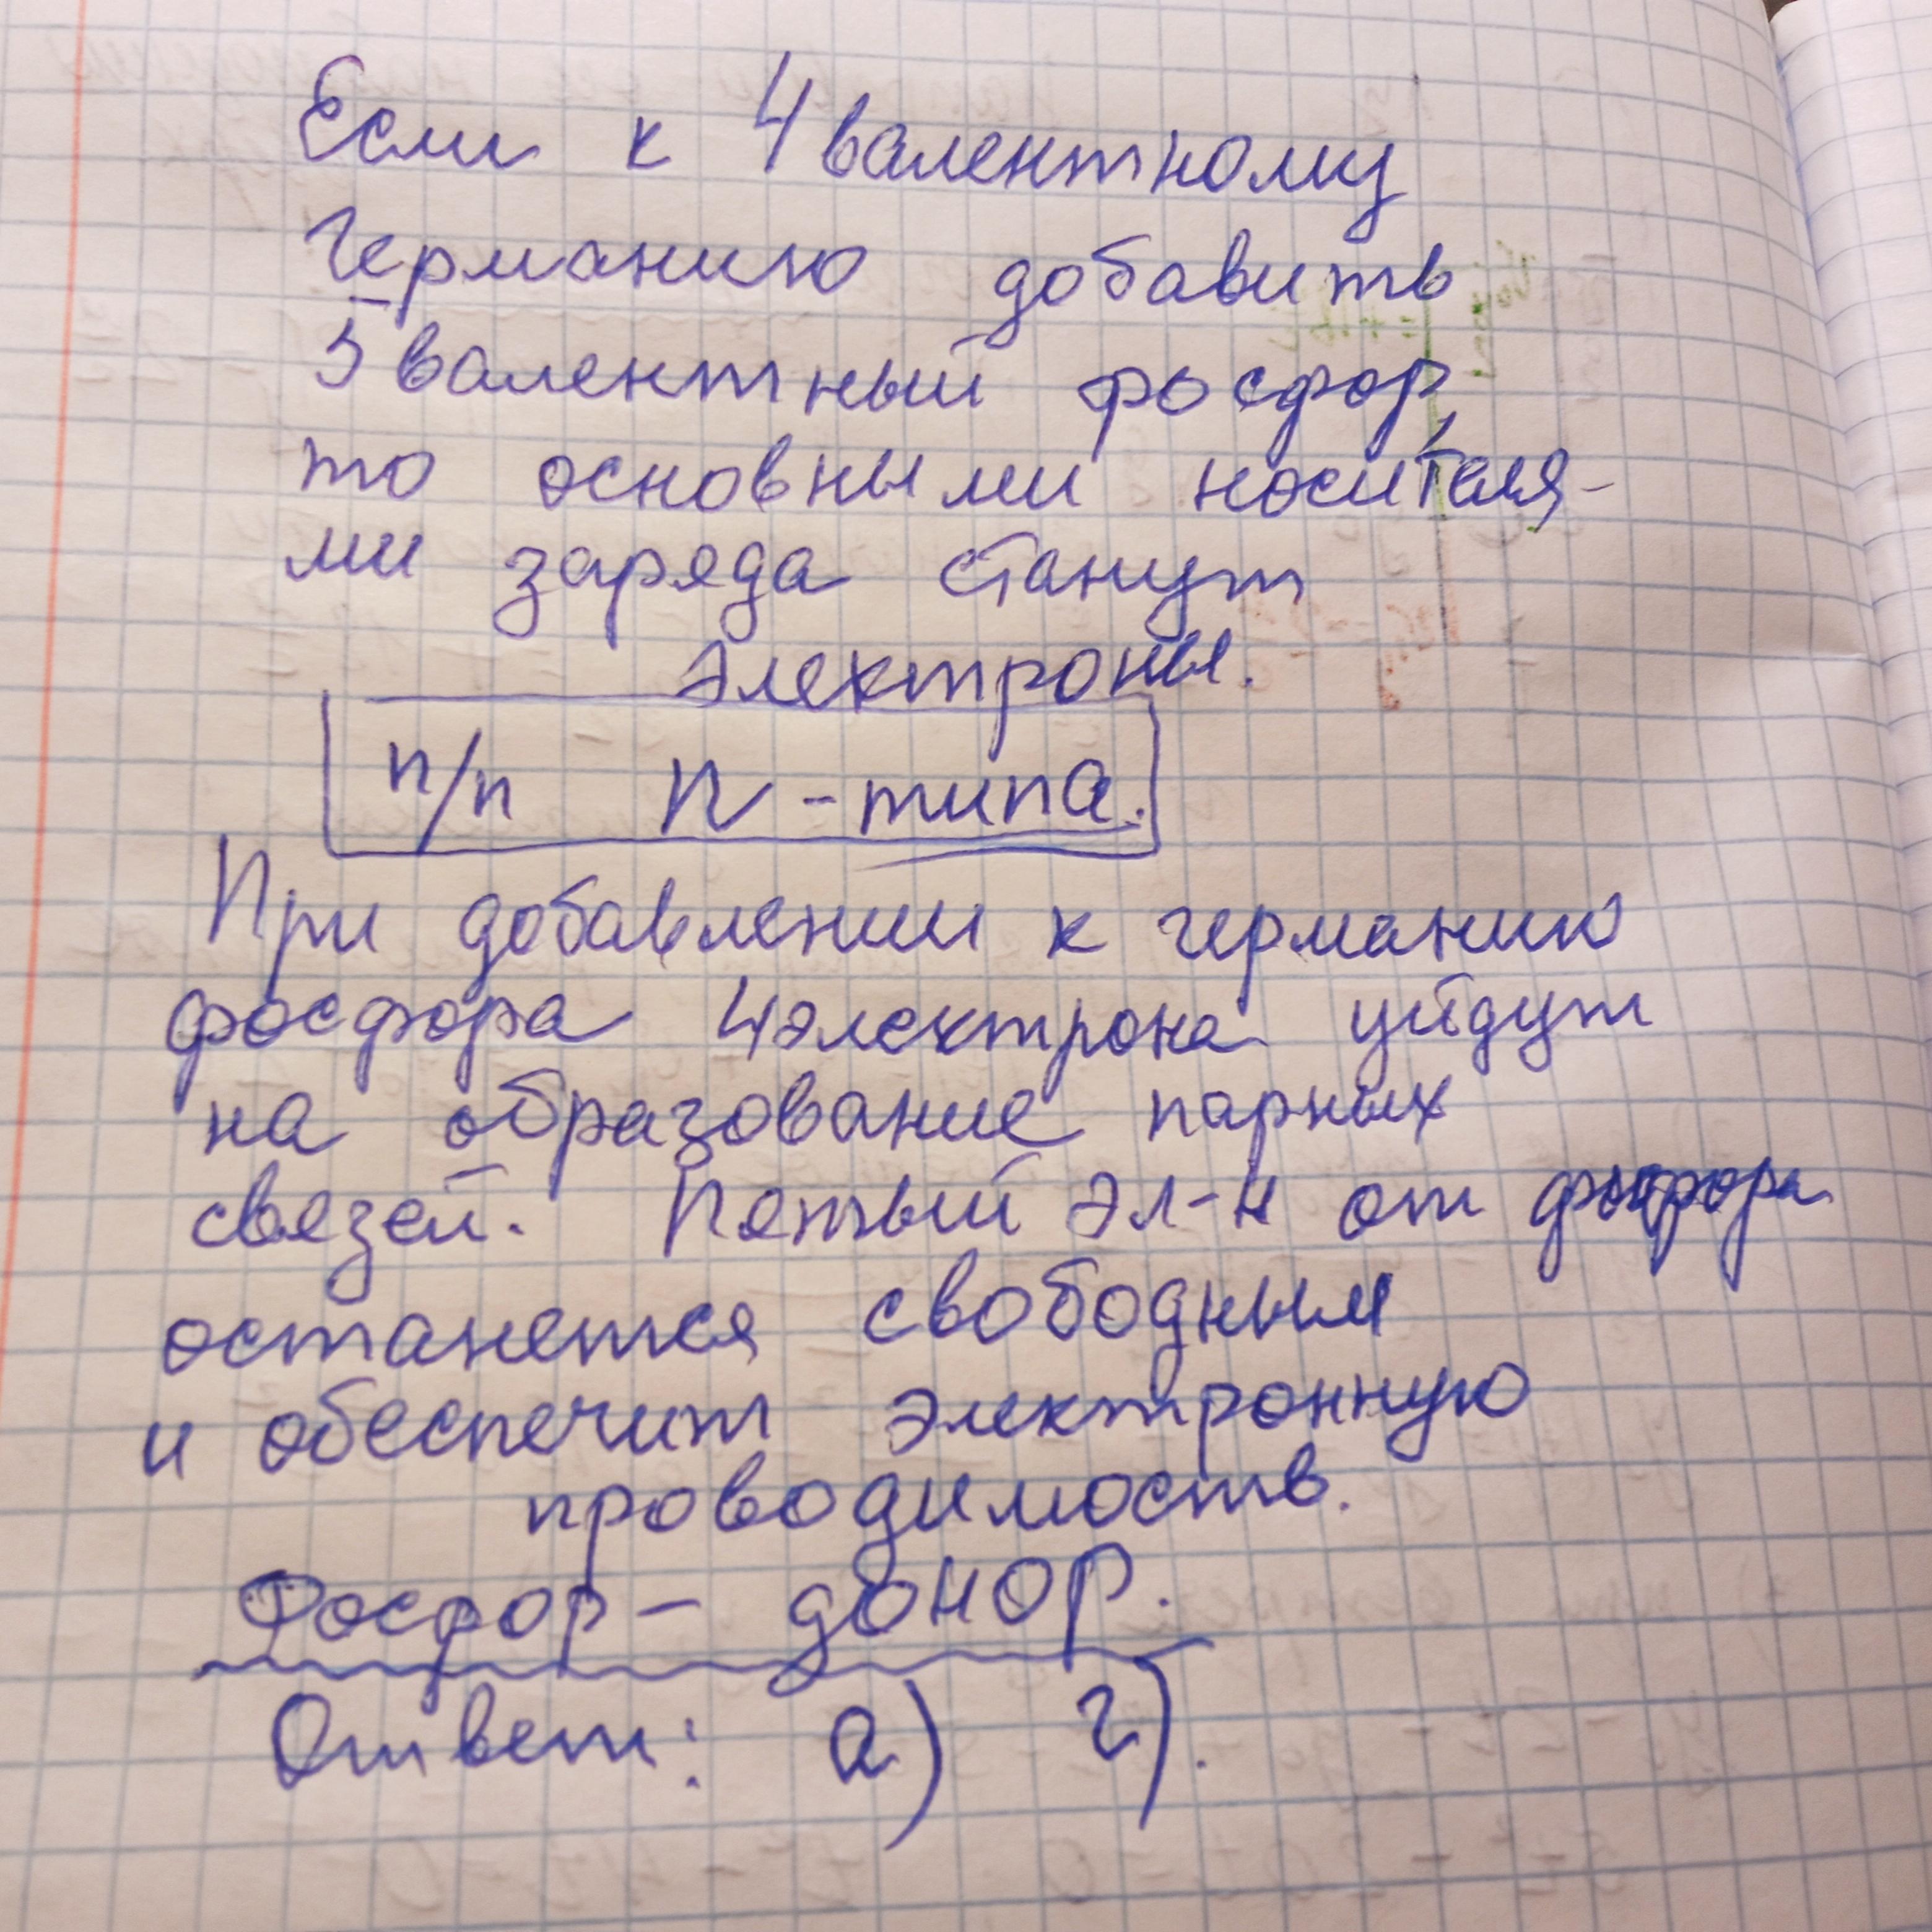 Если к 4валентному
Германию добавить
5валентный фосфор,
то основными носителя-
ми заряда станут
электроны.
п/п n-типа.
При добавлении к германию
фосфора 4электрона уйдут
на образование парных
связей. Пятый эл-н от фосфора
останется свободным
и обеспечит электронную
проводимость.
Фосфор - донор.
Ответ: а) г).